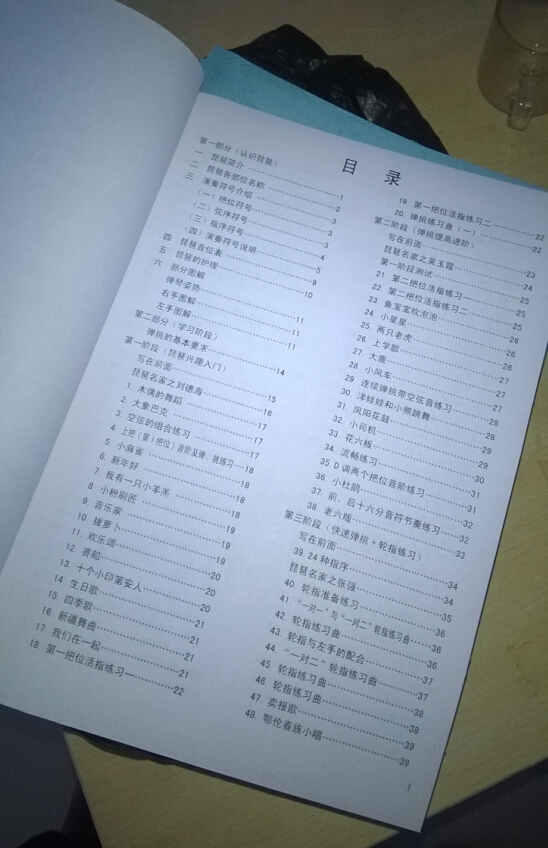 目 录
第一部分（认识琵琶）
一 琵琶简介 1
二 琵琶各部位名称 2
三 演奏符号介绍 3
（一）把位符号 3
（二）弦序符号 3
（三）指序符号 4
（四）演奏符号说明 5
四 琵琶音位表 9
五 琵琶的护理 10
六 部分图解
弹琴姿势 11
右手图解 11
左手图解 11
第二部分（学习阶段）
弹挑的基本要求 14
第一阶段（琵琶兴趣入门）
写在前面 15
琵琶名家之刘德海 16
1 木偶的舞蹈 17
2 大象巴克 17
3 空弦的组合练习 17
4 上把（第1把位）音阶及弹、挑练习 18
5 小麻雀 18
6 新年好 18
7 我有一只小羊羔 18
8 小粉刷匠 19
9 音乐家 19
10 拔萝卜 19
11 欢乐颂 20
12 赛船 20
13 十个小印第安人 20
14 生日歌 21
15 四季歌 21
16 新疆舞曲 21
17 我们在一起 21
18 第一把位活指练习一 22
19 第一把位活指练习二 22
20 弹挑练习曲（一） 22
第二阶段（弹挑提高进阶）
写在前面 23
琵琶名家之吴玉霞 24
第一阶段测试 25
21 第二把位活指练习一 25
22 第二把位活指练习二 25
23 鱼宝宝吹泡泡 26
24 小星星 26
25 两只老虎 26
26 上学歌 27
27 大鹿 27
28 小风车 27
29 连续弹挑带空弦音练习 28
30 洋娃娃和小熊跳舞 28
31 凤阳花鼓 29
32 小司机 29
33 花六板 30
34 流畅练习 31
35 D调两个把位音阶练习 31
36 小杜鹃 32
37 前、后十六分音符节奏练习 32
38 老六版 33
第三阶段（快速弹挑+轮指练习）
写在前面 34
39.24种指序 34
琵琶名家之张强 35
40 轮指准备练习 36
41 “一对一”与“一对二”轮指练习曲 36
42 轮指练习曲 36
43 轮指与左手的配合 37
44 “一对二”轮指练习曲 37
45 轮指练习曲 38
46 轮指练习曲 38
47 卖报歌 39
48 鄂伦春族小唱 39
1